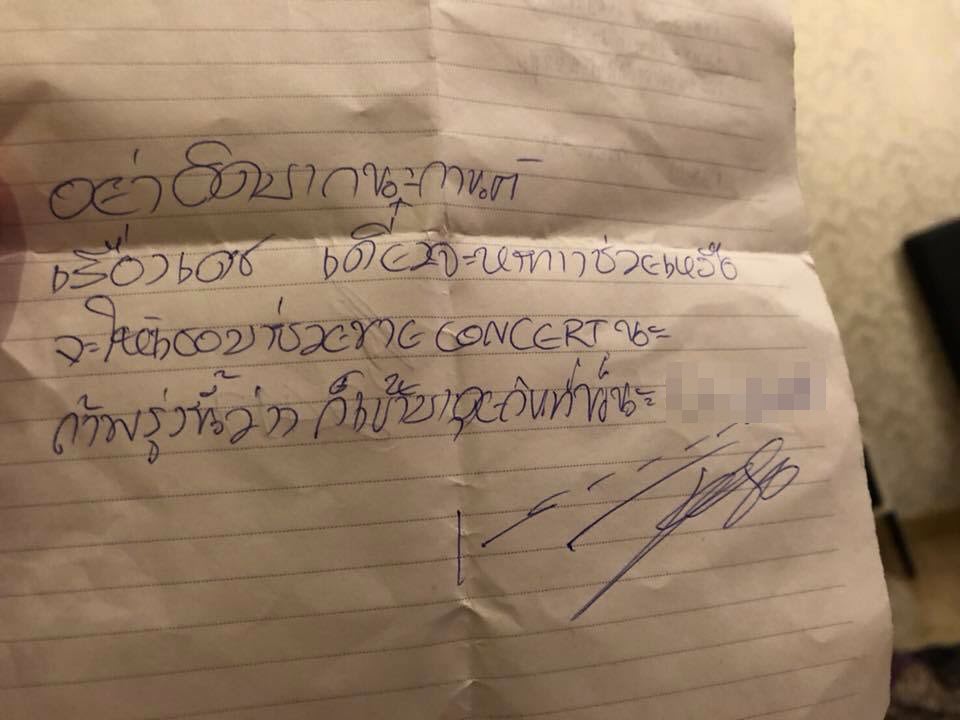 อย่าคิดมากนะกานต์
เรื่องเดช เดี๋ยวจะหาทางช่วยเหลือ
จะให้ช่วยขาย CONCERT นะ
ถ้าพรุ่งนี้ว่าง ก็เข้ามาคุยกันที่นะ